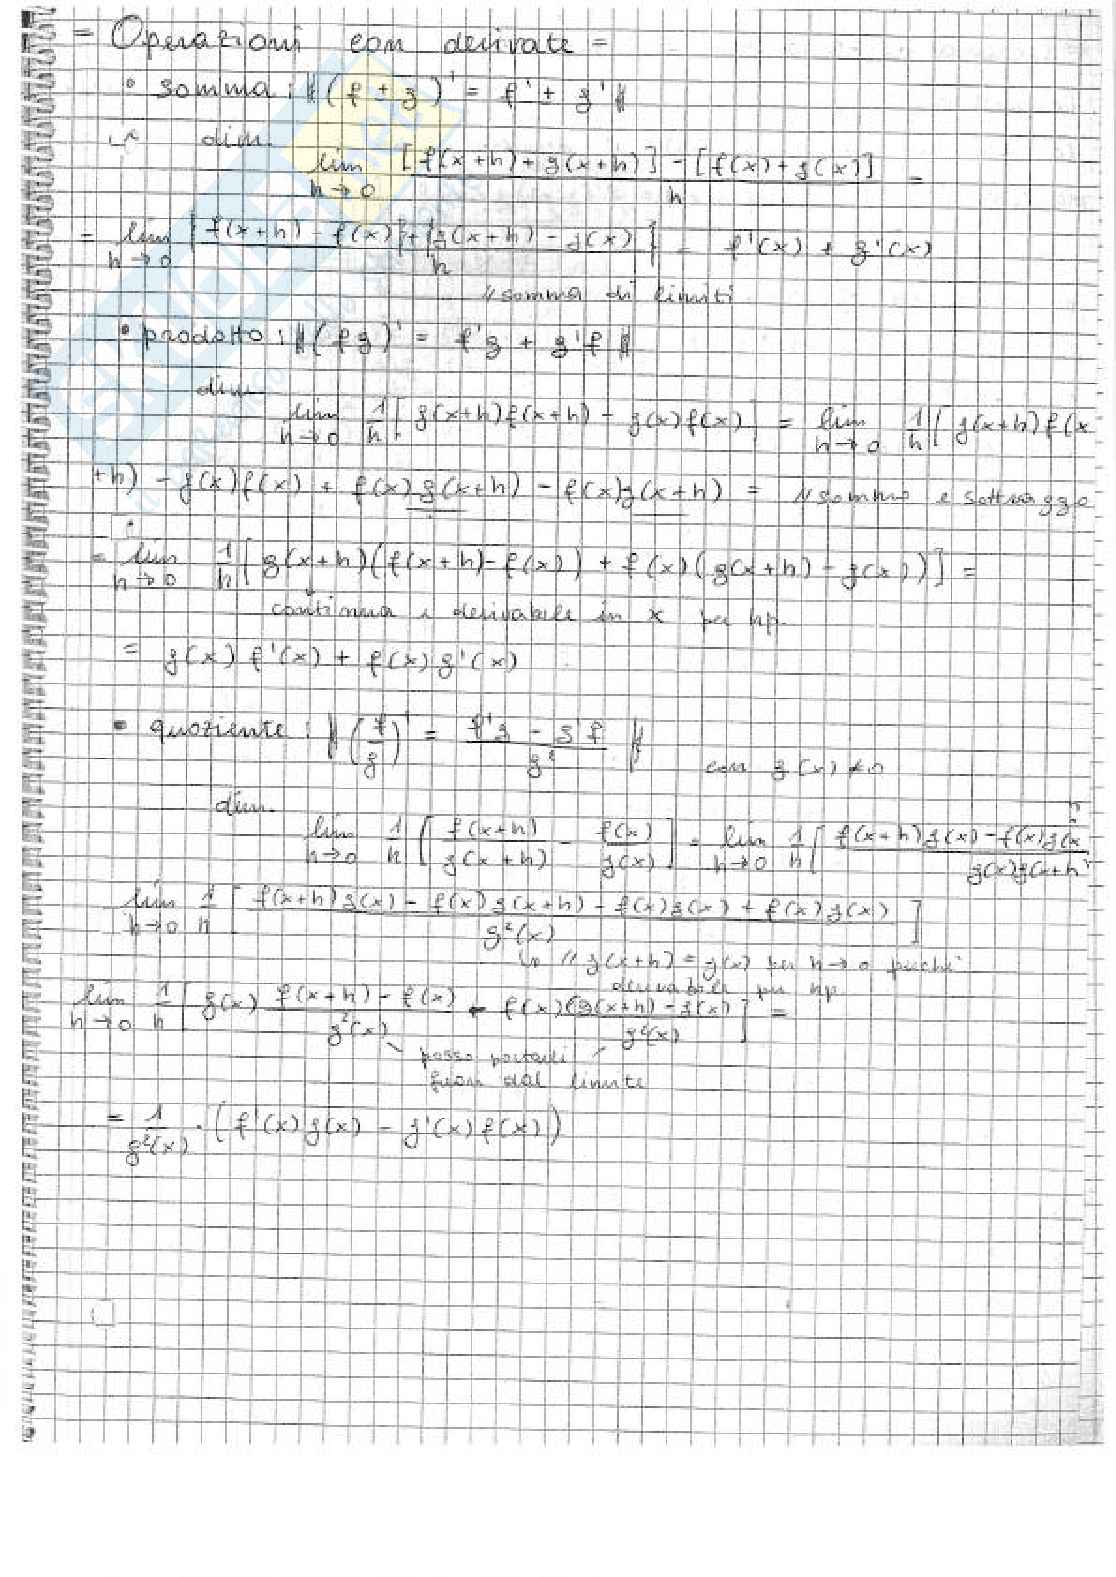 = Operazioni con derivate =
• somma: ‖ (f ± g)' = f' ± g' ‖
dim.
lim h→0 [f(x+h) + g(x+h)] - [f(x) + g(x)] / h =
= lim h→0 {f(x+h) - f(x)} + {g(x+h) - g(x)} / h = f'(x) + g'(x)
// somma di limiti
• prodotto: ‖ (fg)' = f'g + g'f ‖
dim
lim h→0 1/h [g(x+h)f(x+h) - g(x)f(x)] = lim h→0 1/h [g(x+h)f(x
+h) - g(x)f(x) + f(x)g(x+h) - f(x)g(x+h) = // sommo e sottraggo
= lim h→0 1/h [g(x+h)(f(x+h) - f(x)) + f(x)(g(x+h) - g(x))] =
continua e derivabile in x per hp.
= g(x) f'(x) + f(x) g'(x)
• quoziente: ‖ (f/g)' = f'g - g'f / g² ‖ con g(x) ≠ 0
dim.
lim h→0 1/h [f(x+h)/g(x+h) - f(x)/g(x)] = lim h→0 1/h [f(x+h)g(x) - f(x)g(x / g(x)g(x+h)
lim h→0 1/h [f(x+h)g(x) - f(x)g(x+h) - f(x)g(x) + f(x)g(x) / g²(x)]
↳ // g(x+h) = g(x) per h→0 perché
derivabile per hp
lim h→0 1/h [g(x) f(x+h) - f(x) / g²(x) - f(x) (g(x+h) - g(x) / g²(x)] =
posso portarli
fuori dal limite
= 1/g²(x) · (f'(x)g(x) - g'(x)f(x))